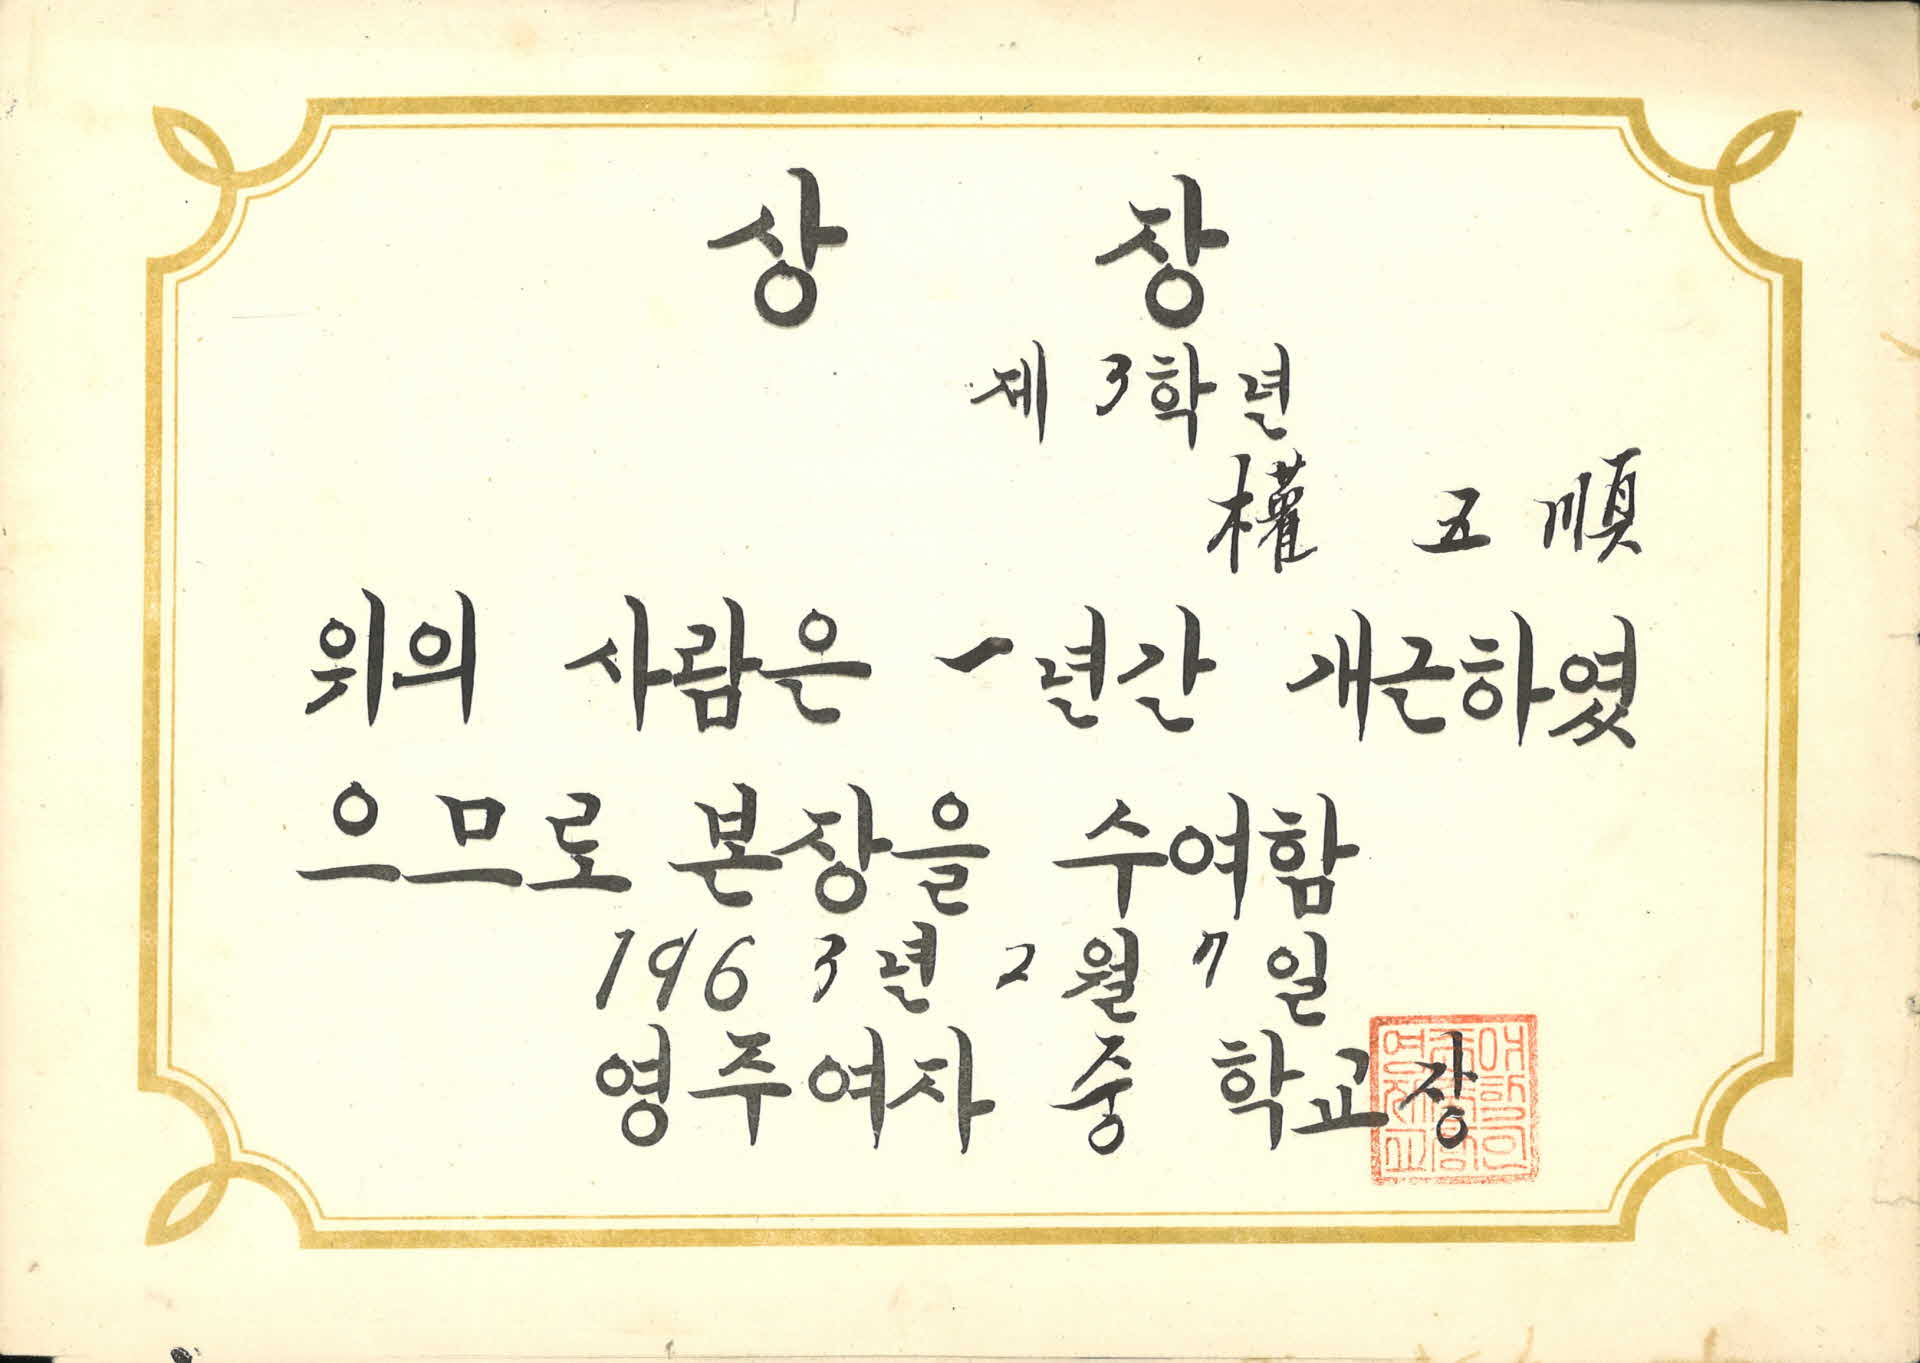 상 장
제 3학년
權 五 順
위의 사람은 一년간 개근하였
으므로 본장을 수여함
1963년 2월 7일
영주여자 중 학교장